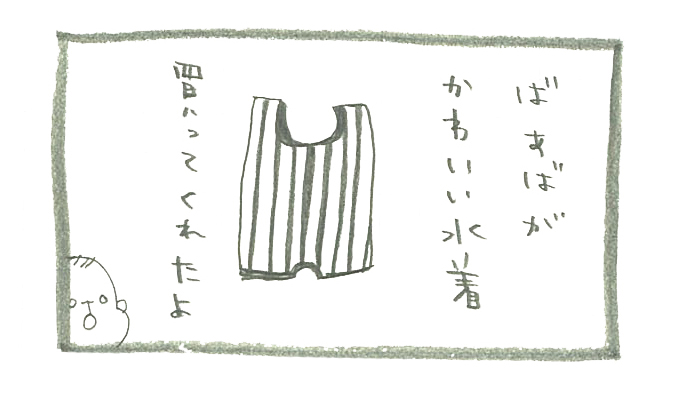 ばあばが
かわいい水着
買ってくれたよ